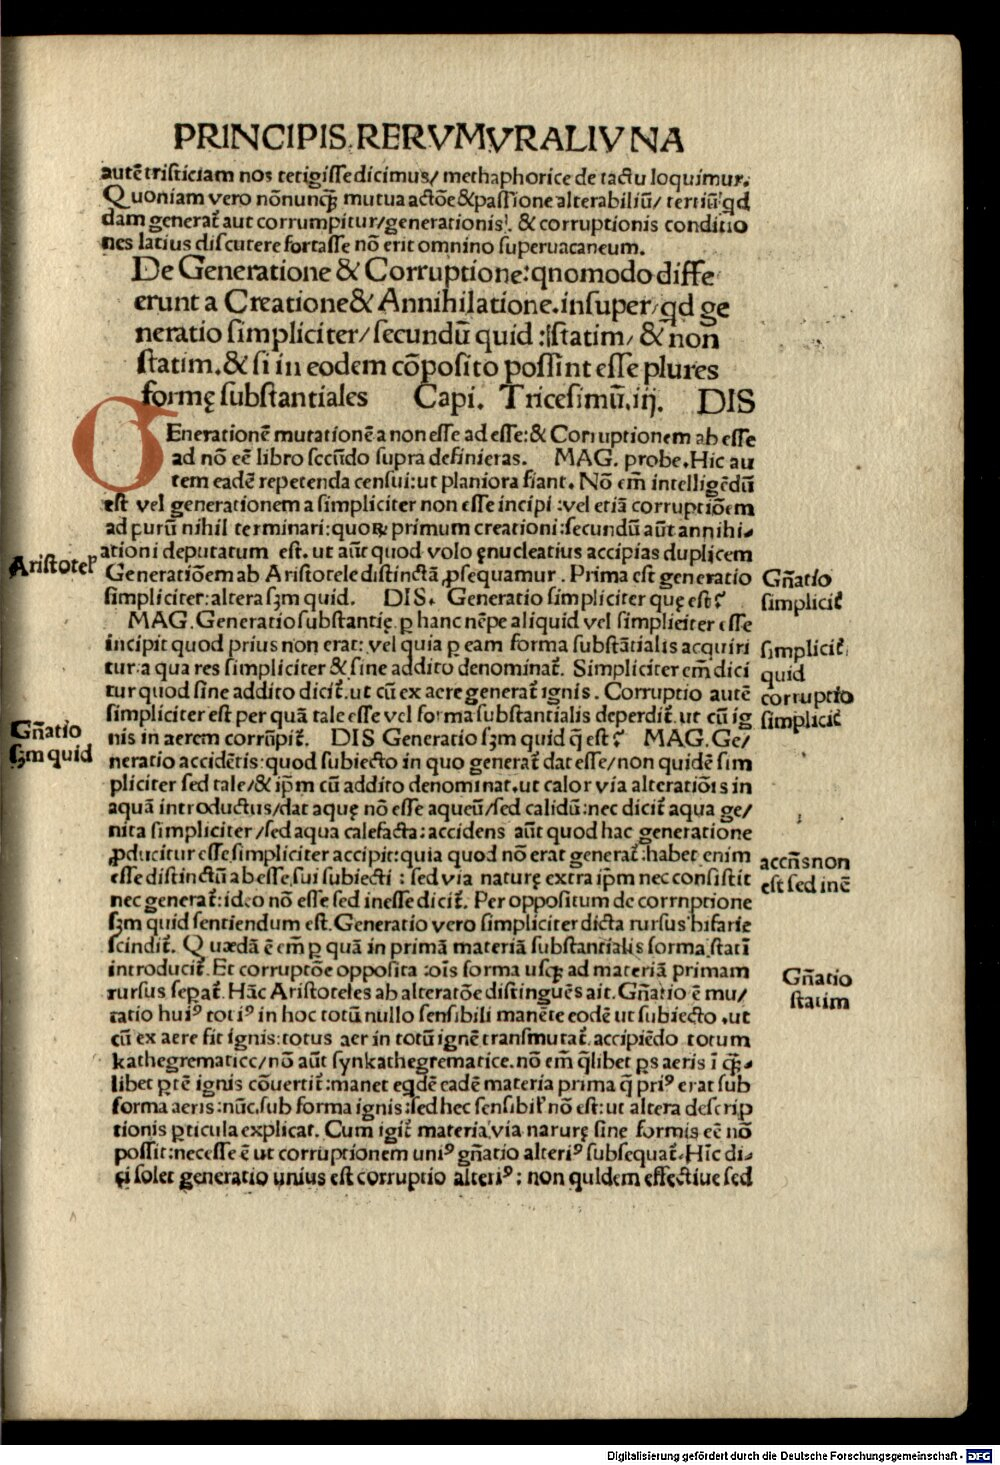 PRINCIPIS RERVMVRALIVNA
autē tristiciam nos tetigisse dicimus/ methaphorice de tactu loquimur.
Quoniam vero nōnunq̄ mutua actōe & passione alterabiliū/ tertiū qd
dam generat̄ aut corrumpitur/generationis. & corruptionis conditio
nes latius discutere fortasse nō erit omnino superuacaneum.
De Generatione & Corruptione:qnomodo diffe
erunt a Creatione & Annihilatione.insuper/qd ge
neratio simpliciter/secundū quid:statim/ & non
statim.& si in eodem cōposito possint esse plures
formę substantiales Capi. Tricesimū.iij. DIS
GEnerationē mutationē a non esse ad esse:& Corruptionem ab esse
ad nō eē libro secūdo supra definieras. MAG. probe.Hic au
tem eadē repetenda censui:ut planiora fiant. Nō em̄ intelligēdū
est vel generationem a simpliciter non esse incipi:vel etiā corruptiōem
ad purū nihil terminari:quoꝝ primum creationi:secundū aūt annihi-
ationi deputatum est. ut aūt quod volo ęnucleatius accipias duplicem
Aristotel'
Generatiōem ab Aristotele distinctā ꝓsequamur. Prima est generatio
Gn̄atio
simpliciter:altera sꝫm quid. DIS. Generatio simpliciter quę est?
simplicit̄
MAG.Generatio substantię. ꝑ hanc nēpe aliquid vel simpliciter esse
incipit quod prius non erat: vel quia ꝑ eam forma substātialis acquiri
simplicit̄
tur:a qua res simpliciter & sine addito denominat̄. Simpliciter em̄ dici
quid
tur quod sine addito dicit̄.ut cū ex aere generat̄ ignis. Corruptio autē
corruptio
simpliciter est per quā tale esse vel forma substantialis deperdit̄.ut cū ig
simplicit̄
Gn̄atio
nis in aerem corrūpit̄. DIS Generatio sꝫm quid q̄ est? MAG.Ge/
sꝫm quid
neratio accidētis:quod subiecto in quo generat̄ dat esse/non quidē sim
pliciter sed tale/& ip̄m cū addito denominat.ut calor via alteratiōis in
aquā introductus/dat aquę nō esse aqueū/sed calidū:nec dicit̄ aqua ge/
nita simpliciter/sed aqua calefacta:accidens aūt quod hac generatione
ꝓducitur esse simpliciter accipit:quia quod nō erat generat̄:habet enim
accn̄s non
esse distinctū ab esse sui subiecti : sed via naturę extra ip̄m nec consistit
est sed inē
nec generat̄:ideo nō esse sed inesse dicit̄. Per oppositum de corrnptione
sꝫm quid sentiendum est.Generatio vero simpliciter dicta rursus bifarie
scindit̄. Quædā ē em̄ ꝑ quā in primā materiā substantialis forma statī
introducit̄.Et corruptōe opposita :oīs forma usqꝫ ad materiā primam
Gn̄atio
rursus sepat̄.Hāc Aristoteles ab alteratōe distinguēs ait.Gn̄atio ē mu/
statim
tatio huiꝰ totiꝰ in hoc totū nullo sensibili manēte eodē ut subiecto.ut
cū ex aere fit ignis:totus aer in totū ignē transmutat̄.accipiēdo totum
kathegrematice/nō aūt synkathegrematice.nō em̄ q̄libet ꝑs aeris ī q̄-
libet ꝑtē ignis cōuertit̄:manet eqdē eadē materia prima q̄ priꝰ erat sub
forma aeris:nūc.sub forma ignis:sed hec sensibil' nō est:ut altera descrip
tionis ꝑticula explicat. Cum igit̄ materia via naturę sine formis eē nō
possit:necesse ē ut corruptionem uniꝰ gn̄atio alteriꝰ subsequat̄.Hīc di-
ci solet generatio unius est corruptio alteriꝰ: non quldem effectiue sed
Digitalisierung gefördert durch die Deutsche Forschungsgemeinschaft - DFG